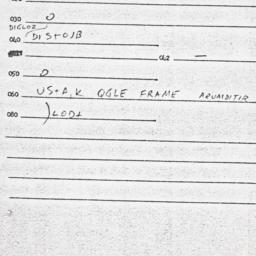 030 0
DIGLOZ
040 DISTOJB
042 —
050 0
060 US+A,K QGLE FRAME ARUMDITIR
080 )LODA